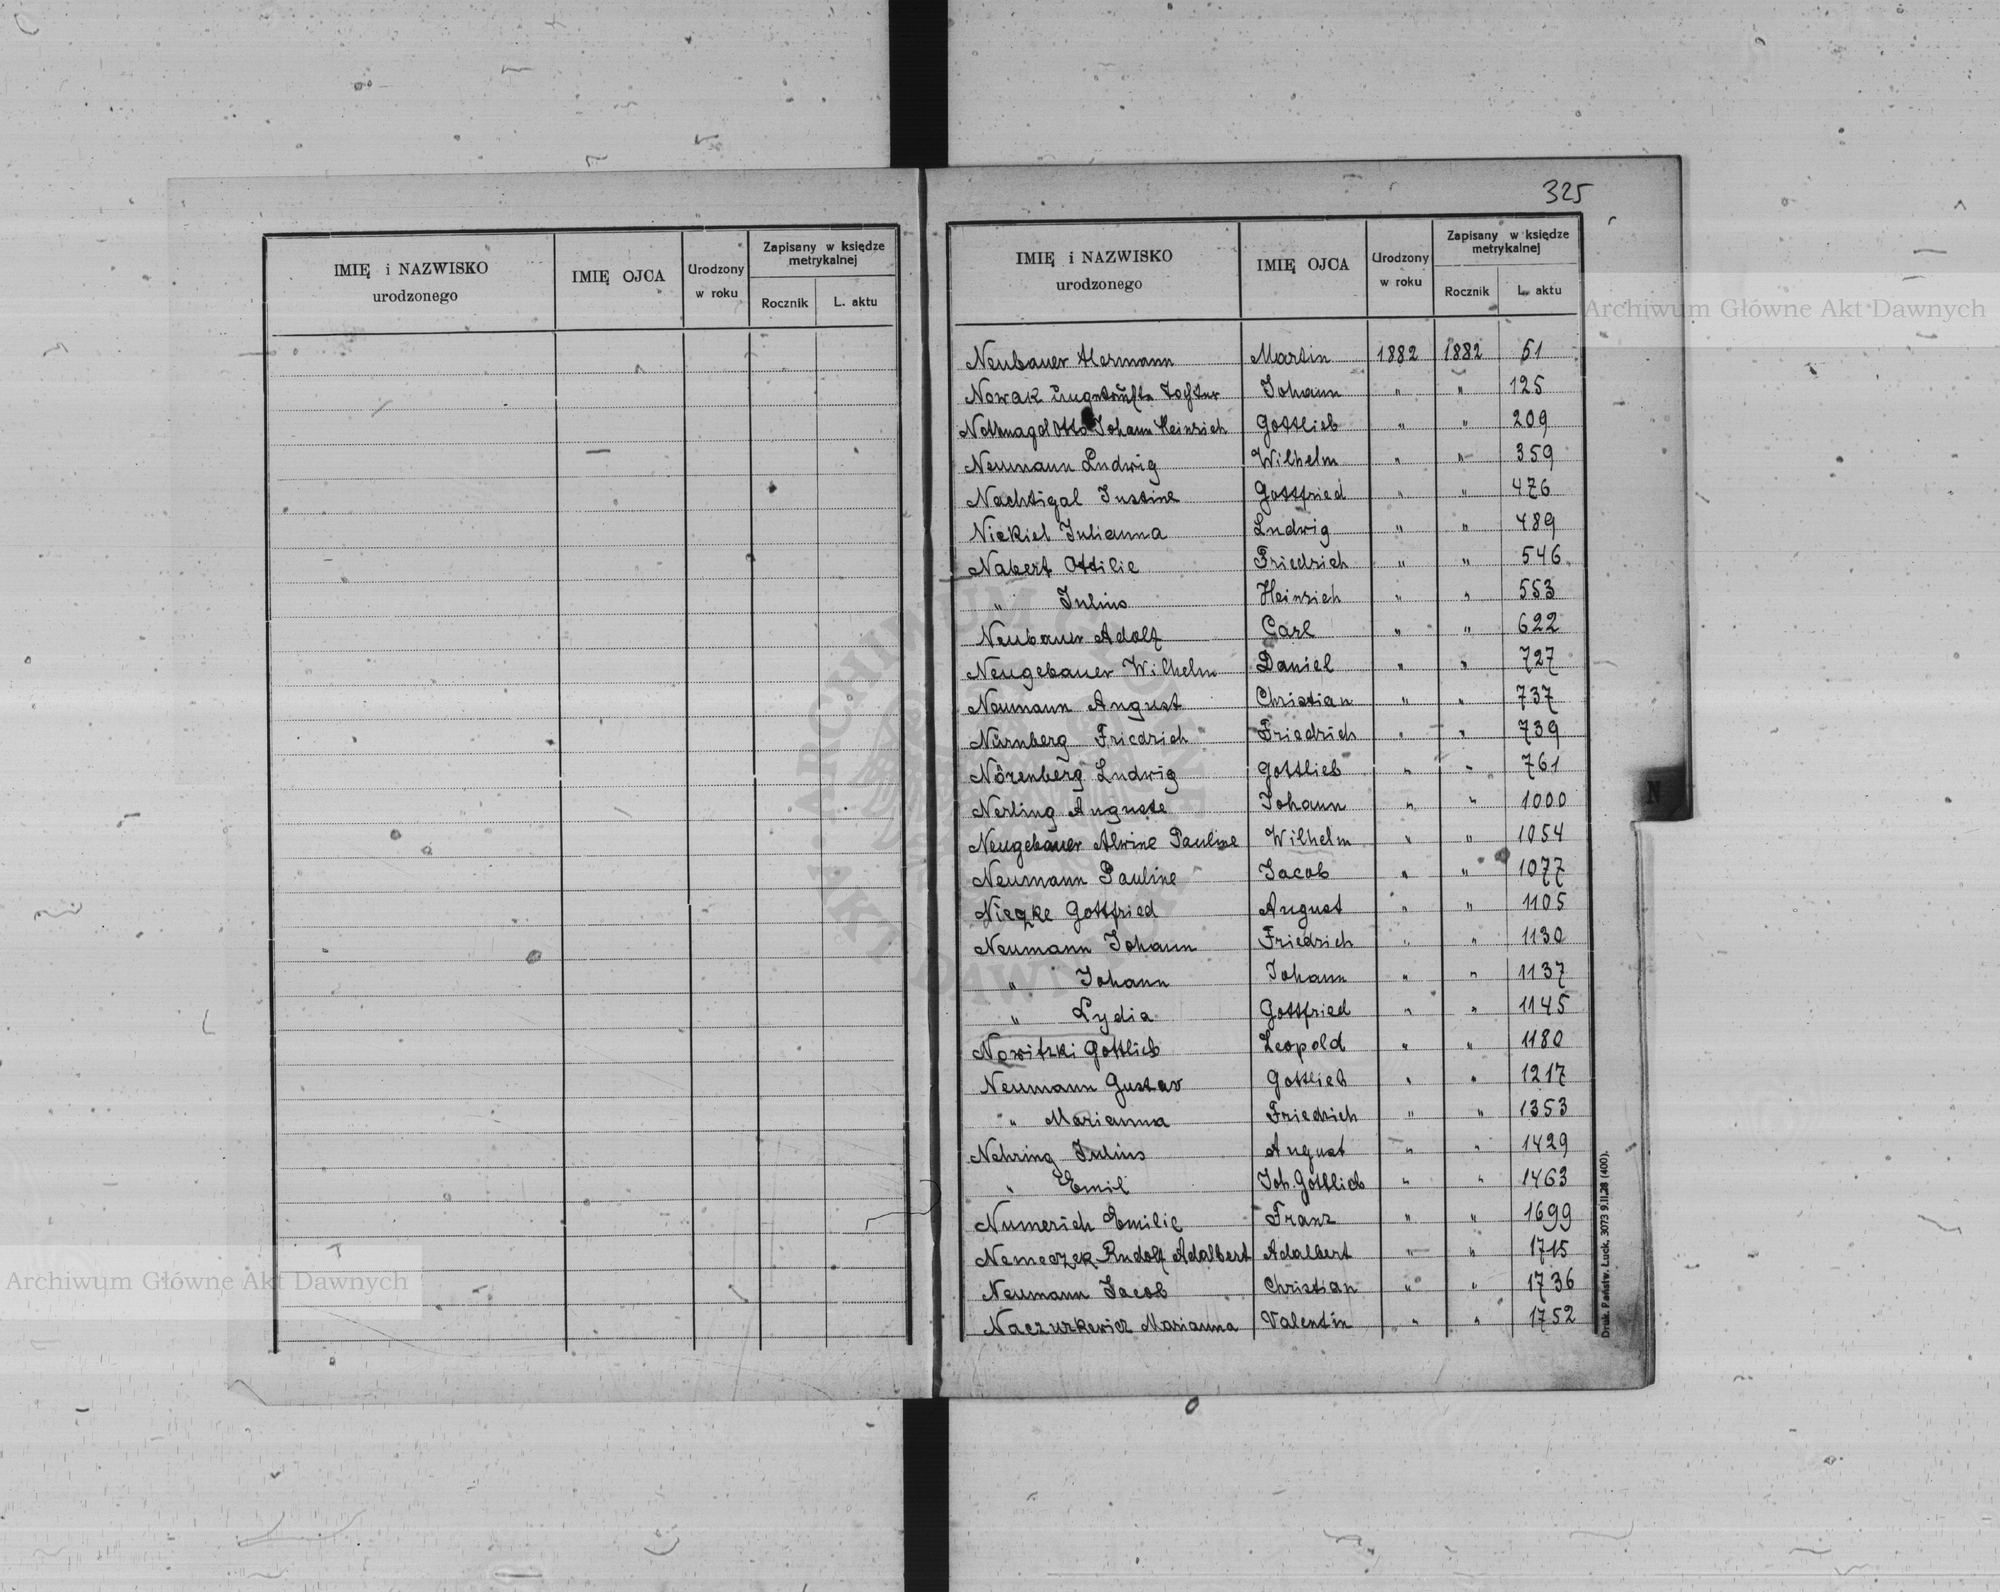 325
IMIĘ i NAZWISKO urodzonego IMIĘ OJCA Urodzony w roku Zapisany w księdze metrykalnej Rocznik L. aktu
IMIĘ i NAZWISKO urodzonego IMIĘ OJCA Urodzony w roku Zapisany w księdze metrykalnej Rocznik L. aktu
Neubauer Hermann Martin 1882 1882 51
Nowak ungetaufte Tochter Johann " " 125
Nothnagel Otto Johann Heinrich Gottlieb " " 209
Neumann Ludwig Wilhelm " " 359
Nachtigal Justine Gottfried " " 476
Niekiel Julianna Ludwig " " 489
Nabert Ottilie Friedrich " " 546
" Julius Heinrich " " 553
Neubauer Adolf Carl " " 622
Neugebauer Wilhelm Daniel " " 727
Neumann August Christian " " 737
Nürnberg Friedrich Friedrich " " 739
Nörenberg Ludwig Gottlieb " " 761
Nerling Auguste Johann " " 1000
Neugebauer Alwine Pauline Wilhelm " " 1054
Neumann Pauline Jacob " " 1077
Niezke Gottfried August " " 1105
Neumann Johann Friedrich " " 1130
" Johann Johann " " 1137
" Lydia Gottfried " " 1145
Nowitzki Gottlieb Leopold " " 1180
Neumann Gustav Gottlieb " " 1217
" Marianna Friedrich " " 1353
Nehring Julius August " " 1429
" Emil Joh. Gottlieb " " 1463
Numerich Emilie Franz " " 1699
Nemeczek Rudolf Adalbert Adalbert " " 1715
Neumann Jacob Christian " " 1736
Naczurkewicz Marianna Valentin " " 1752
Druk. Państw. Łuck, 3073 9.II.28 (400).
N
Archiwum Główne Akt Dawnych
Archiwum Główne Akt Dawnych
ARCHIWUM GŁÓWNE AKT DAWNYCH